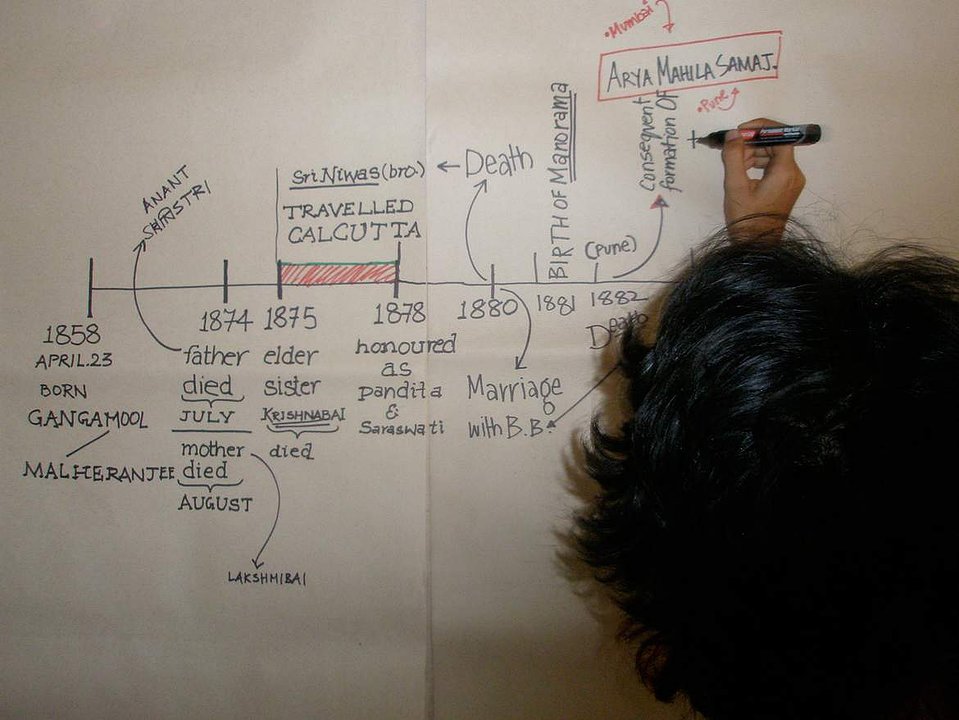 •Mumbai
ARYA MAHILA SAMAJ.
•Pune
Consequent
formation OF
BIRTH OF Manorama
(Pune)
ANANT
SHASTRI
Sri Niwas (bro.)
← Death
TRAVELLED
CALCUTTA
1858
APRIL.23
BORN
GANGAMOOL
MALHERANJEE
1874
father
died
JULY
mother
died
AUGUST
LAKSHMIBAI
1875
elder
sister
KRISHNABAI
died
1878
honoured
as
pandita
&
Saraswati
1880
Marriage
with B.B.
1881
1882
Death